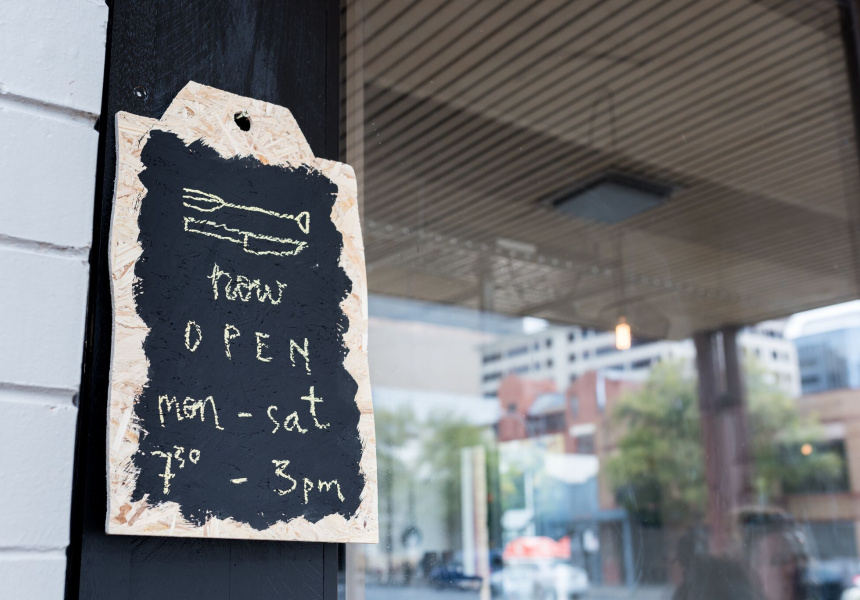 now
OPEN
mon - sat
7³⁰ - 3pm